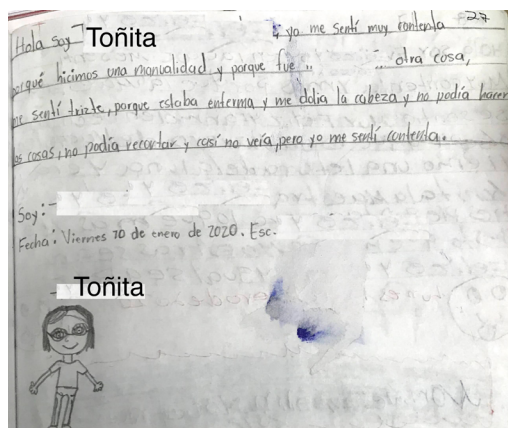 27
Hola soy Toñita y yo me sentí muy contenta
porqué hicimos una manualidad y porque fue .. .. otra cosa,
me sentí trizte, porque estaba enferma y me dolia la cabeza y no podía hacer
las cosas, no podía recortar y casi no veía, pero yo me sentí contenta.
Soy:
Fecha: Viernes 10 de enero de 2020. Esc.
Toñita